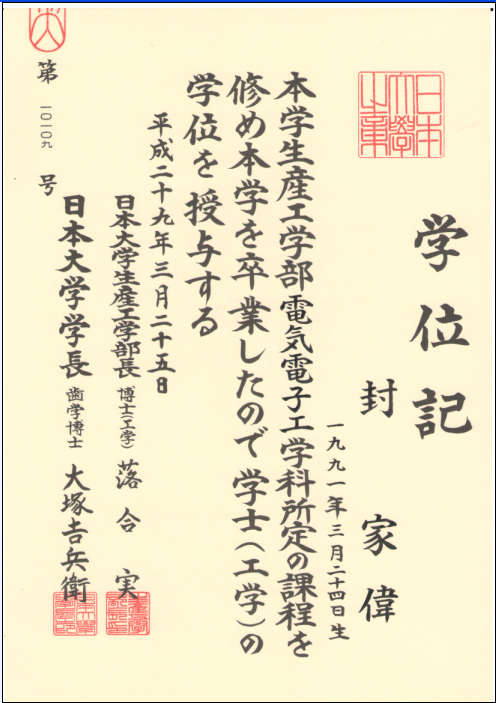 学位記
封家偉
一九九一年三月二十四日生
本学生産工学部電気電子工学科所定の課程を
修め本学を卒業したので学士(工学)の
学位を授与する
平成二十九年三月二十五日
日本大学生産工学部長 博士(工学) 落合実
日本大学学長 歯学博士 大塚吉兵衛
第一〇一〇九号